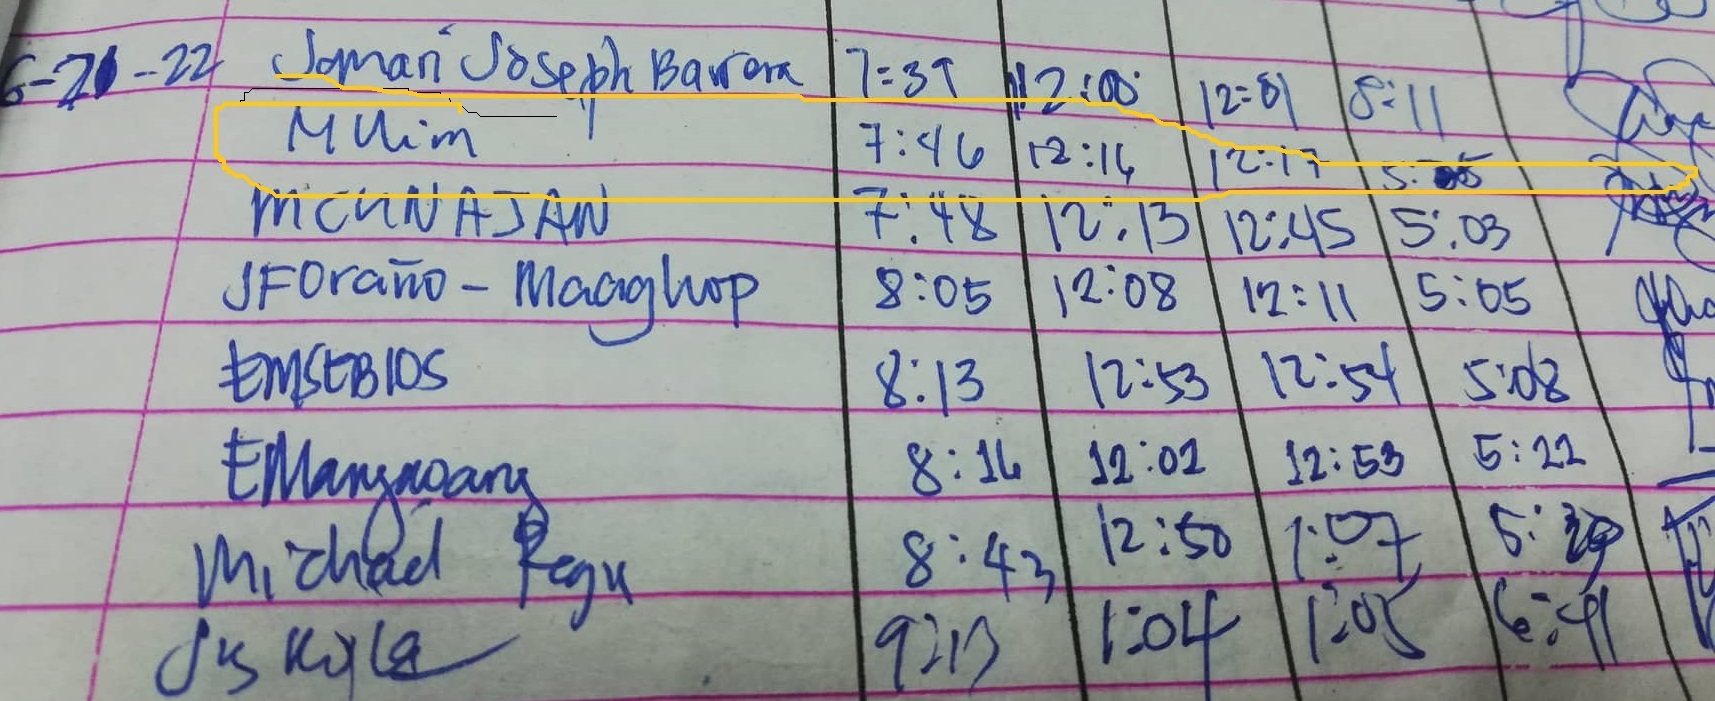 6-21-22 Jomari Joseph Barrera 7:39 12:00 12:01 8:11
MUim 7:46 12:16 12:17 5:05
MCUNAJAN 7:48 12:13 12:45 5:03
JFOraño - Maaghop 8:05 12:08 12:11 5:05
EMSEBIOS 8:13 12:53 12:54 5:08
EMangyoang 8:16 12:02 12:53 5:22
Michael 8:43 12:50 1:07 5:39
Kyle 9:13 1:04 1:05 6:41